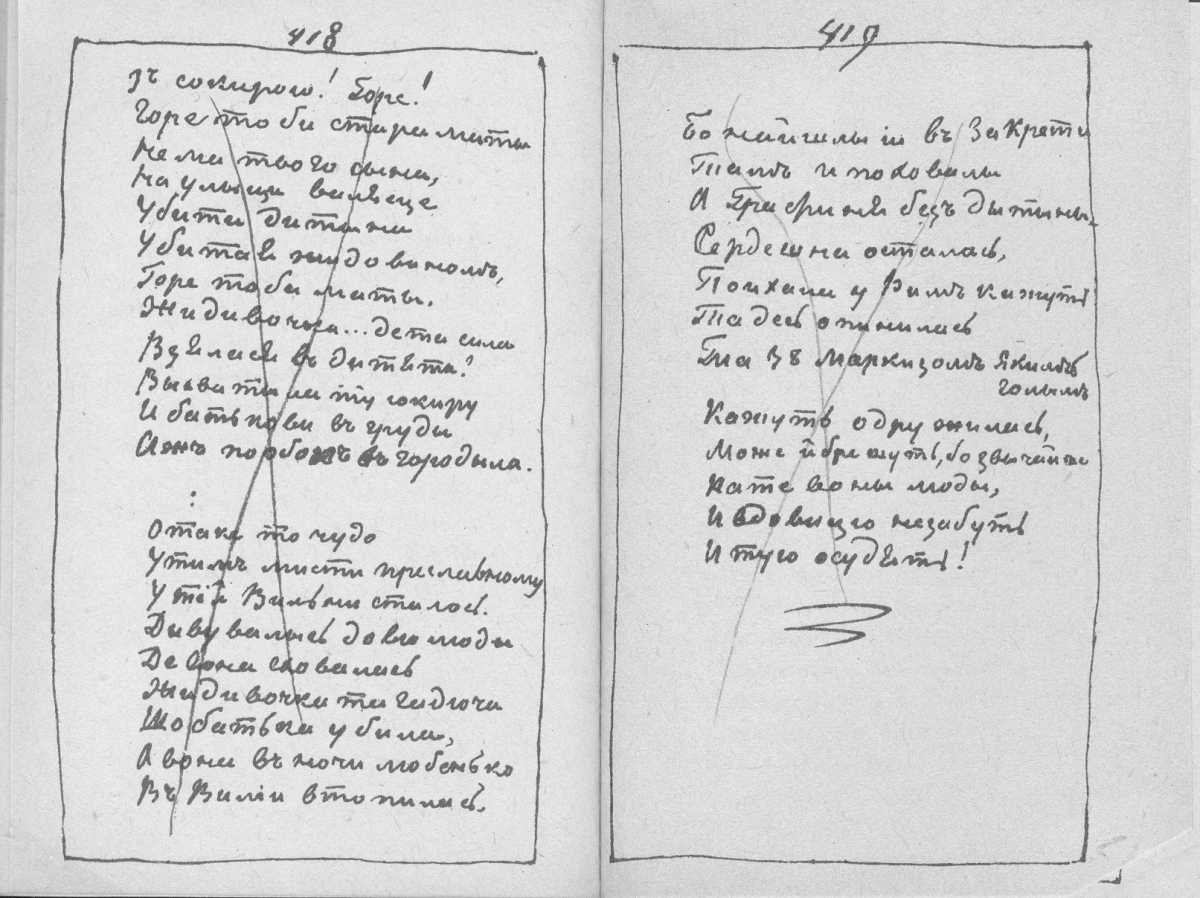 418
зъ сокирою! Горе!
Горе тоби стара маты
Нема твого сына,
На улыци валяеце
Убита дитына
Убитая жидовиномъ,
Горе тоби маты.
Жидивочка... де та сила
Взяласи въ дитяти?
Выхватила ту сокиру
И батькови въ груди
Ажъ по обохъ въгородыла.
:
Отаке то чудо
У тимъ мисти преславному
У тій Вильни сталось.
Дивувалысь довго люди
Де вона сховалась
Жидивочка та гадюча
Що батька убила,
А вона въ ночи любенько
Въ Виліи втопилась.
419
Бо найшлы іи въ Закрети
Тамъ и поховалы
А Графиня безъ дытыны,
Сердешна осталась,
Поихала у Римъ кажуть
Та десь опинилась
Та зъ маркизомъ якимсь
голымъ
Кажуть одружилась,
Може й брешуть, бо звычайне
Кате воны люды,
И вдовицю незабуть
И тую осудять!